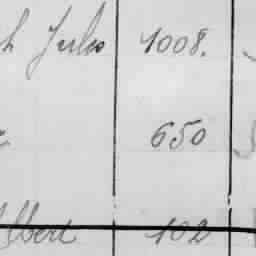 h Jules 1008.
650
Albert 102